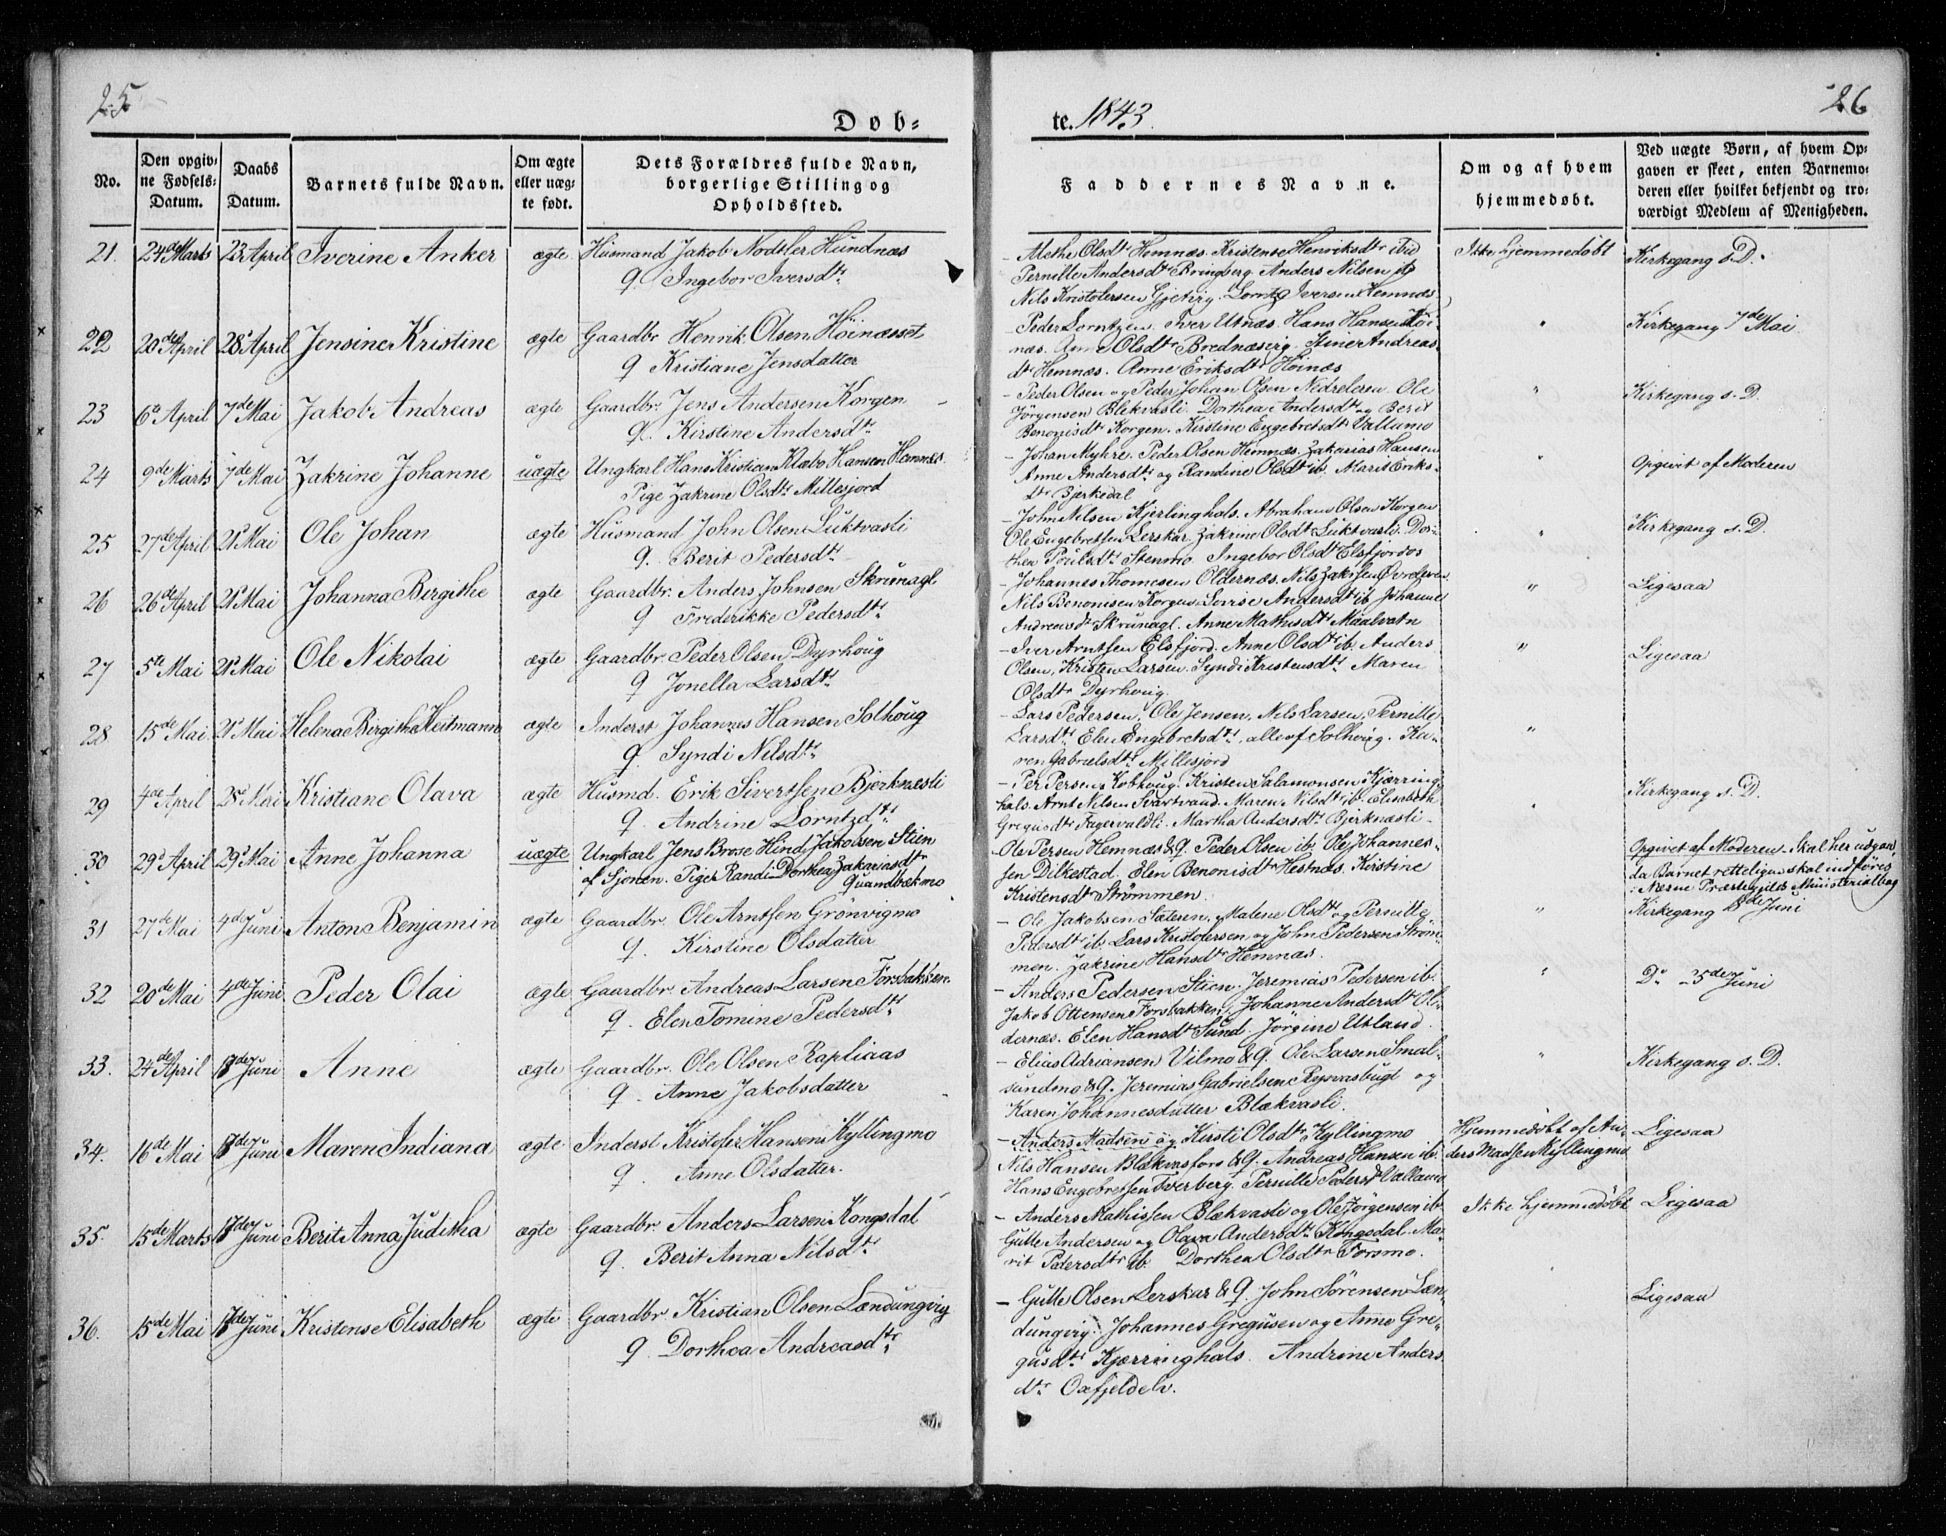 25
26
Døb=
te. 1843.
No.
Den opgiv=
ne Fødsels=
Datum.
Daabs
Datum.
Barnets fulde Navn.
Om ægte
eller uæg=
te født.
Dets Forældres fulde Navn,
borgerlige Stilling og
Opholdssted.
Faddernes Navne.
Om og af hvem
hjemmedøbt.
Ved uægte Børn, af hvem Op=
gaven er skeet, enten Barnemo=
deren eller hvilket bekjendt og tro=
værdigt Medlem af Menigheden.
21. 24de Marts 23 April Iverine Anker ægte Husmand Jakob Nodtler Hundnæs
q. Ingebor Iversdtr
Olsdtr Hemnæs. Kristense Henriksdtr ibid
Pernille Andersdtr Bringberg. Anders Nilsen ib
Nils Kristofersen Lorntz Iversen Hemnæs
Ikke hjemmedøbt
Kirkegang s. D.
22 20de April 28de April Jensine Kristine ægte Gaardbr. Henrik Olsen Höinæsset
q Kristiane Jensdatter
- Peder Lorntzen. Iver Utnæs. Hans Hansen Höi-
næs. Olsdtr Brednæserg. Andreas-
dtr Hemnæs. Anne Eriksdtr Höinæs
"
Kirkegang 7de Mai
23 6te April 7de Mai Jakob Andreas ægte Gaardbr. Jens Andersen Korgen
q. Kirstine Andersdtr
- Peder Olsen og Peder Johan Olsen Nedreleren. Ole
Jörgensen Blekvasli. Dorthea Andersdtr og Berit
Benonisdtr Korgen. Kirstine Engebretsdtr Vallamo
"
Kirkegang s. D.
24 9de Marts 7de Mai Zakrine Johanne uægte Ungkarl Hans Kristian Klæbo Hansen Hemnæs
Pige Zakrine Olsdtr Millesjord
- Johan Myhre. Peder Olsen Hemnæs. Zakarias Hansen
Anne Andersdtr og Randine Olsdtr ib. Marit Eriks-
dtr Bjerkedal
"
Opgivet af Moderen
25 27de April 21 Mai Ole Johan ægte Husmand John Olsen Luktvasli
q. Berit Pedersdtr
- John Nilsen Kjerlinghals. Abraham Olsen Korgen
Ole Engebretsen Lerskar. Zakrine Olsdtr Luktvasli. Dor-
thea Poulsdtr Stenmo. Ingebor Olsdtr Elsfjordos
"
Kirkegang s. D.
26 26de April 21 Mai Johanna Bergithe ægte Gaardbr. Anders Johnsen Skrunagl
q Frederikke Pedersdtr
- Johannes Thomesen Oldernæs. Nils Zakrisen
Nils Benonisen Korgen. Lovise Andersdtr ib. Johanne
Andreasdtr Skrunagl. Anne Mathisdtr Maalvatn
"
Ligesaa
27 5te Mai 21 Mai Ole Nikolai ægte Gaardbr. Peder Olsen Dyrhoug
q Jonella Larsdtr
- Iver Arntsen Elsfjord. Anne Olsdtr ib. Anders
Olsen, Kristen Larsen. Syndi Kristensdtr Maren
Olsdtr Dyrhoug
"
Ligesaa
28 15de Mai 21 Mai Helena Bergitha Heitmann ægte Inderst Johannes Hansen Solhoug
q Syndi Nilsdtr
- Lars Pedersen, Ole Jensen, Nils Larsen, Pernille
Larsdtr Elen Engebretsdtr, alle af Solhoug. Ka-
ren Gabrielsdtr Millesjord
"
29 4de April 28 Mai Kristiane Olava ægte Husmd. Erik Sivertsen Bjerknæsli
q. Andrine Lorntzdtr
- Per Persen Kobhoug. Kristen Salamonsen Kjærring
hals. Arnt Nilsen Svartvand. Maren Nilsdtr ib. Elisabeth
Gregusdtr Fagervaldli. Martha Andersdtr Bjerknæsli
"
Kirkegang s. D.
30 29de April 29de Mai Anne Johanna uægte Ungkarl Jens Brose Hind Jakobsen Stien
af Sjonen. Pige Randi Dorthea Zakariasdtr
Quandbækmo
Ole Persen Hemnæs & q. Peder Olsen ib. Ole Johannes-
sen Dilkestad. Elen Benonisdtr Hestnæs. Kirstine
Kristensdtr Strömmen.
Opgivet af Moderen. Skal her udgaa,
da Barnet retteligen skal indföres
i Næsne Præstegjelds Ministerialbog
31 27de Mai 4de Juni Anton Benjamin ægte Gaardbr. Ole Arntsen Grönvigmo
q. Kirstine Olsdatter
- Ole Jakobsen Sæteren, Malene Olsdtr og Pernille
Pedersdtr ib. Lars Kristofersen og John Pedersen Ström-
men. Zakrine Hansdtr Hemnæs.
"
Kirkegang 18de Juni
32 20de Mai 4de Juni Peder Olai ægte Gaardbr. Andreas Larsen Forsbakken
q. Elen Tomine Pedersdtr
- Anders Pedersen Stien. Jeremias Pedersen ib.
Jakob Ottensen Forsbakken, Johanne Andersdtr Ol-
dernæs. Elen Hansdtr Sund. Jörgine Utland.
"
Do 25de Juni
33. 24de April 18de Juni Anne ægte Gaardbr. Ole Olsen Rapliaas
q. Anne Jakobsdatter
- Elias Adriansen Vilmo & q. Ole Larsen Smal-
sundmo & q. Jeremias Gabrielsen Rysvasbugt og
Karen Johannesdatter Blækvasli.
"
Kirkegang s. D.
34. 16de Mai 18de Juni Maren Indiana ægte Inderst Kristofer Hansen Kyllingmo
q. Anne Olsdatter.
- Anders Madsen og Kirsti Olsdtr Kyllingmo
Nils Hansen Blækvasfors & q. Andreas Hansen ib.
Hans Engebretsen Tverberg. Pernille Pedersdtr Vallamo
Hjemmedøbt af An-
ders Madsen Kyllingmo
Ligesaa
35. 15de Marts 18de Juni Berit Anna Juditha ægte Gaardbr. Anders Larsen Kongsdal
q. Berit Anna Nilsdtr
- Anders Mathissen Blækvasli og Ole Jörgensen ib.
Gutte Andersen og Olava Andersdtr Kongsdal. Ma-
rit Pedersdtr ib. Dorthea Olsdtr Forsmo.
Ikke hjemmedøbt
Ligesaa
36. 15de Mai 18de Juni Kristense Elisabeth ægte Gaardbr. Kristian Olsen Lændungvig
q. Dorthea Andreasdtr
- Gutte Olsen Lerskar & q. John Sörensen Læn-
dungvig. Johannes Gregusen og Anne Gre-
gusdtr Kjærringhals. Andrine Anders
dtr Oxfjeldelv.
Ligesaa